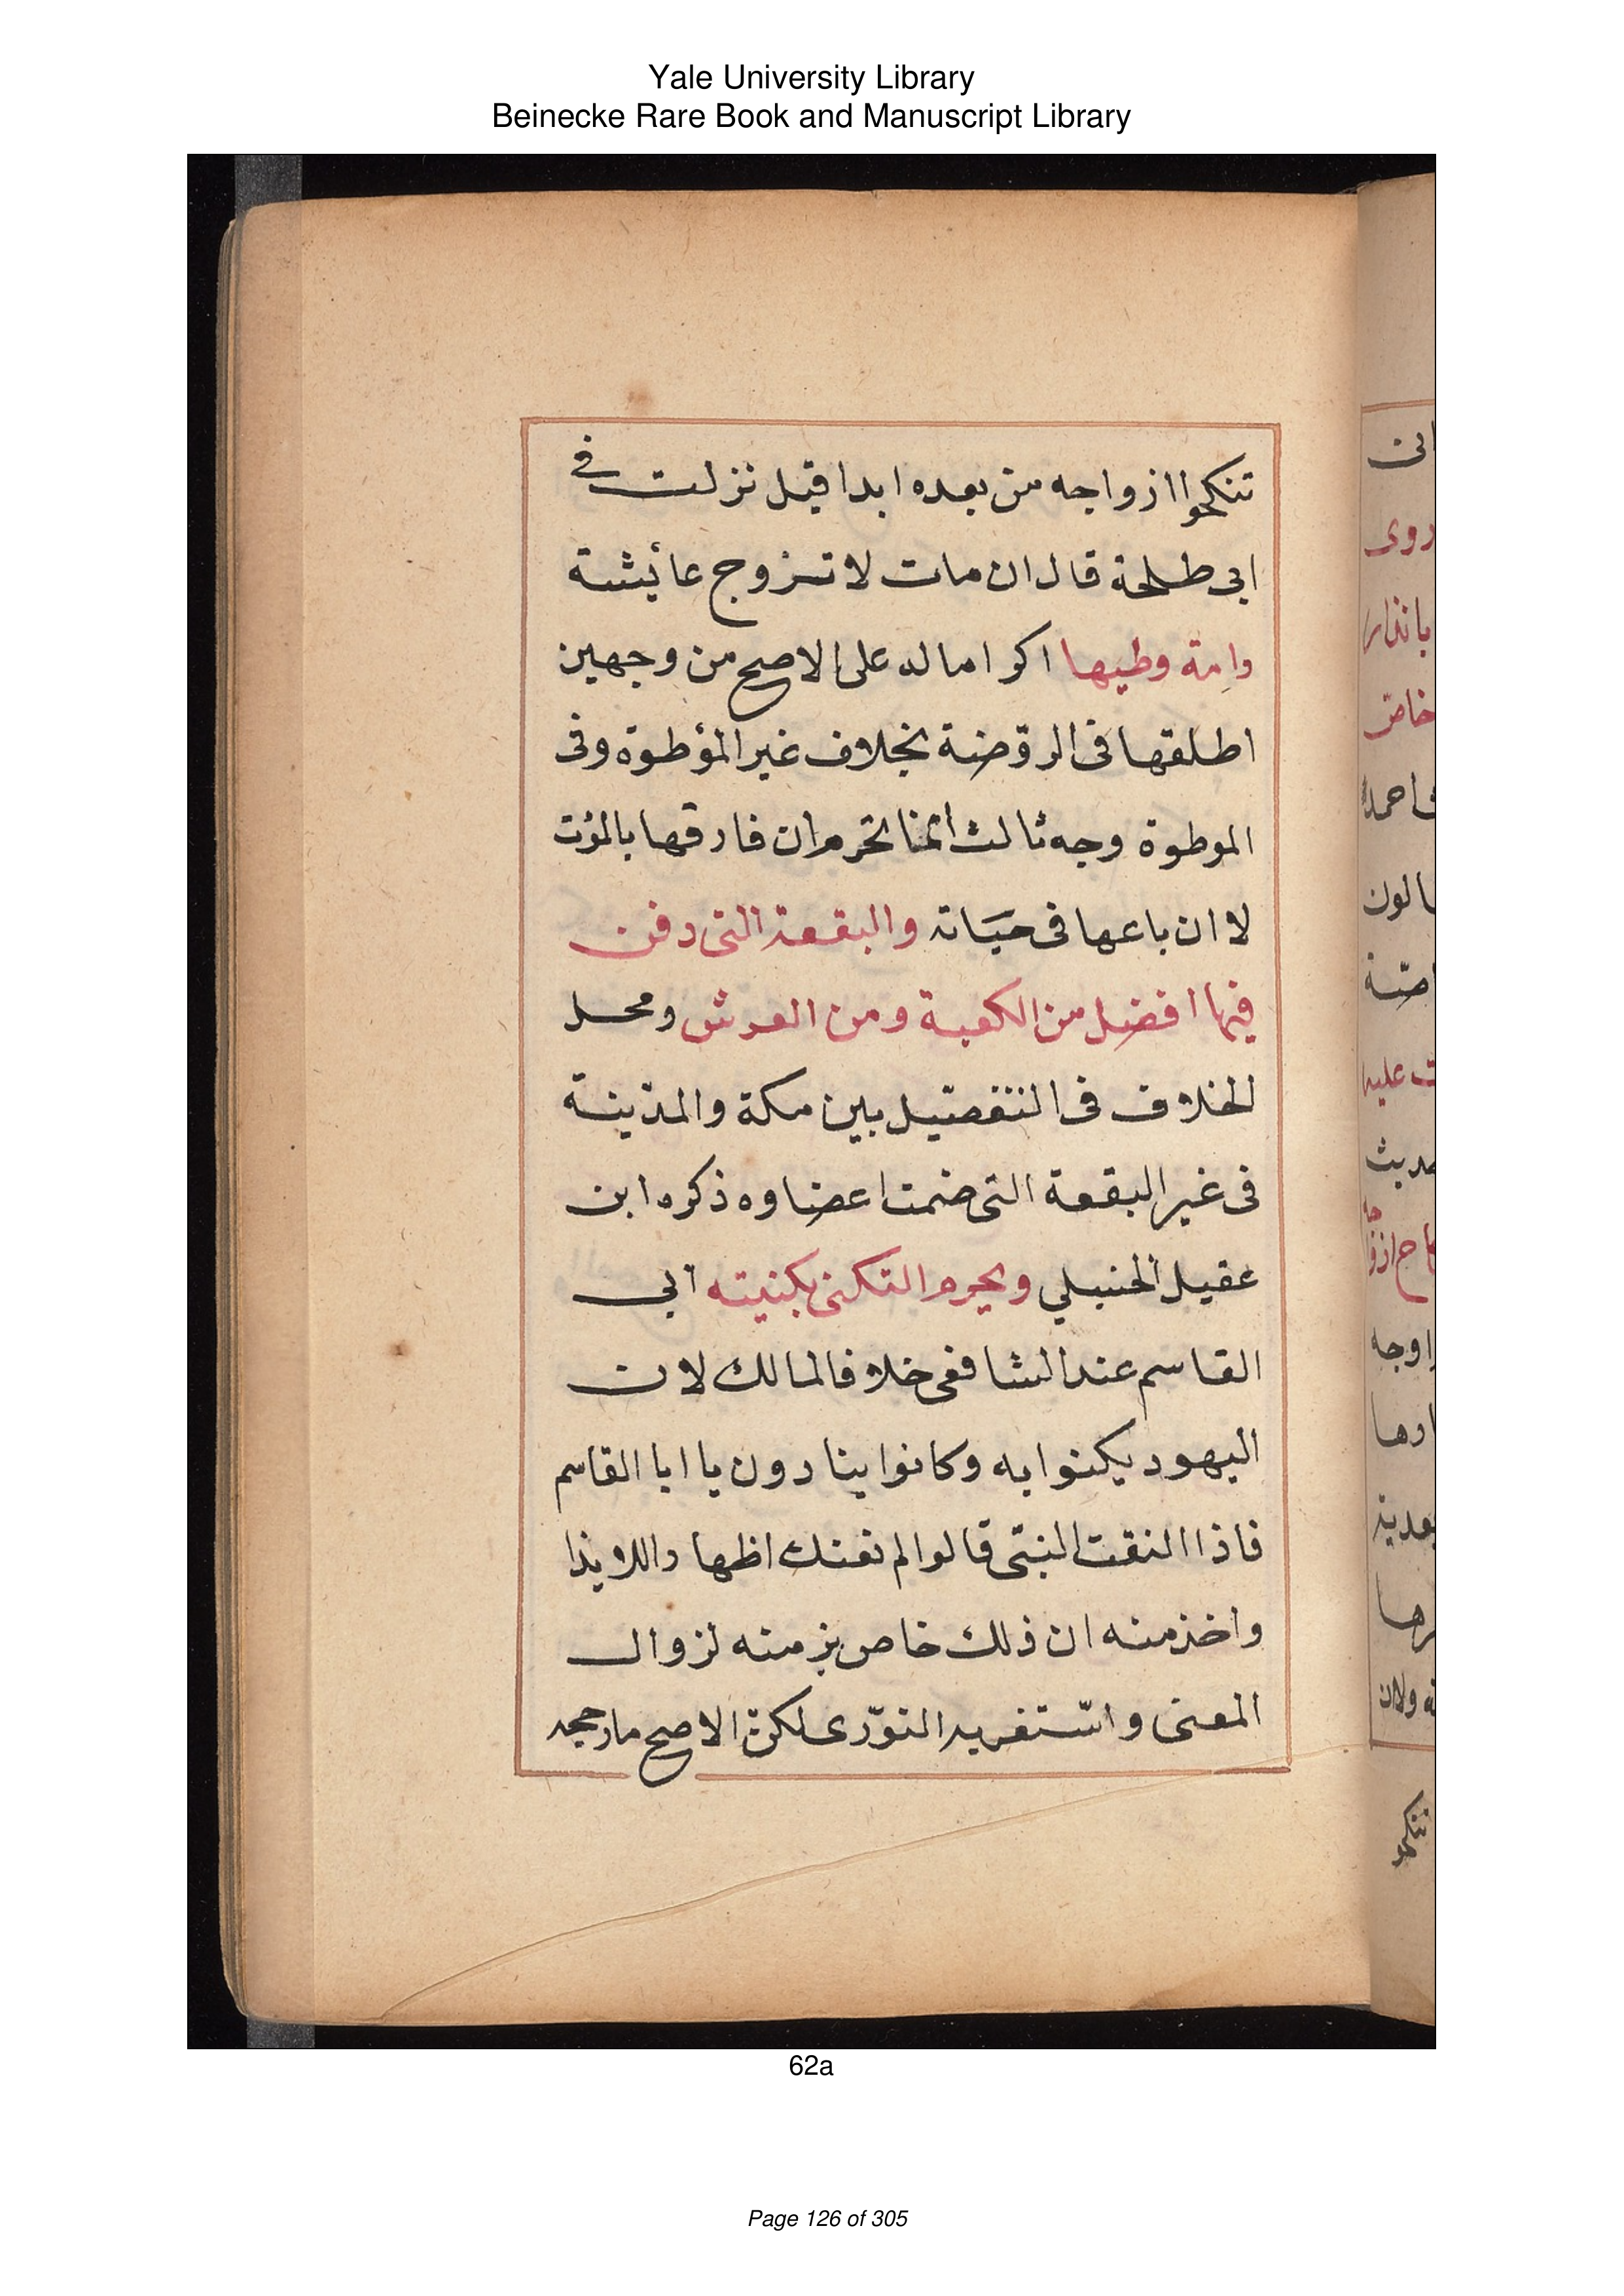 Yale University Library
Beinecke Rare Book and Manuscript Library
تنكحوا ازواجه من بعده ابدا قيل نزلت فى
ابى طلحة قال ان مات لا تزوج عائشة
وامة وطيها اكراما له على الاصح من وجهين
اطلقها فى الروّضة بخلاف غير المؤطوة وفى
الموطوة وجه ثالث انمّا تحرم ان فارقها بالموت
لا ان باعها فى حيَاته والبقعة التى دفن
فيها افضل من الكعبة ومن العرش ومحل
الخلاف فى التفصيل بين مكة والمدينة
فى غير البقعة التى ضمت اعضاوه ذكره ابن
عقيل الحنبلي ويحرم التكنى بكنيته ابى
القاسم عند الشافعى خلافا لمالك لان
اليهود يكنوا به وكانوا ينادون يا ابا القاسم
فاذا التفت النبّى قالوا لم نعنك اظهارا للايذا
واخذ منه ان ذلك خاص بزمنه لزوال
المعنى واستغربه النوّوى لكن الاصح ما رجحه
انى
روى
بانذار
خاصّ
احمد
الون
ت عليه
ديث
اوجه
ارها
ه ولان
تنكحوا
62a
Page 126 of 305